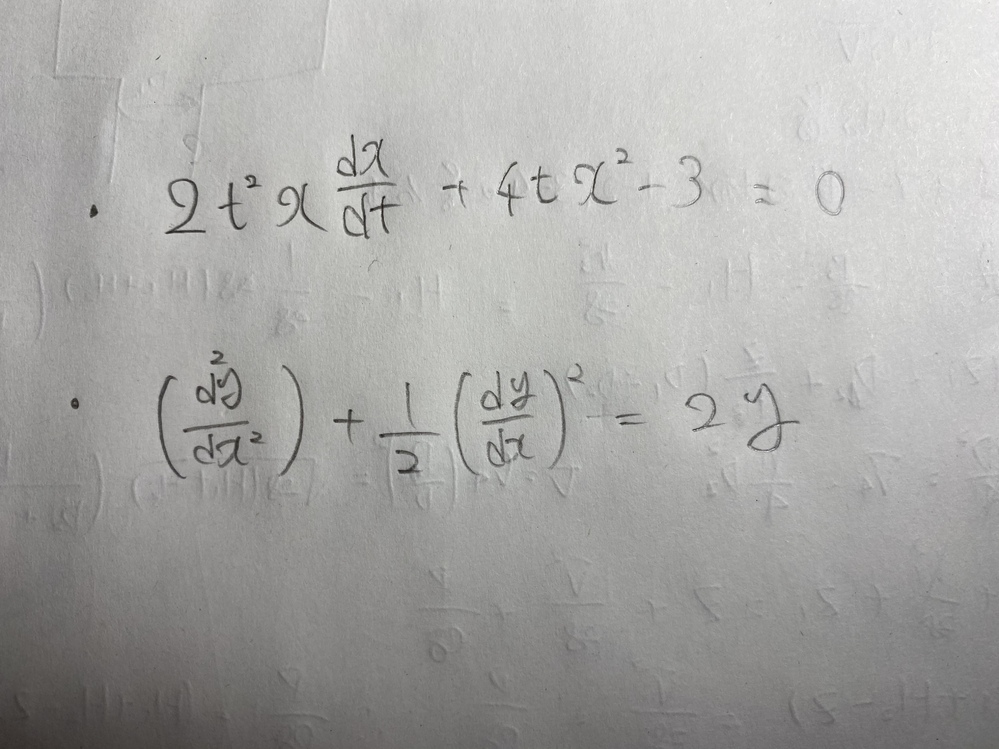 · 2t²x dx/dt + 4tx² - 3 = 0
· (d²y/dx²) + 1/2 (dy/dx)² = 2y